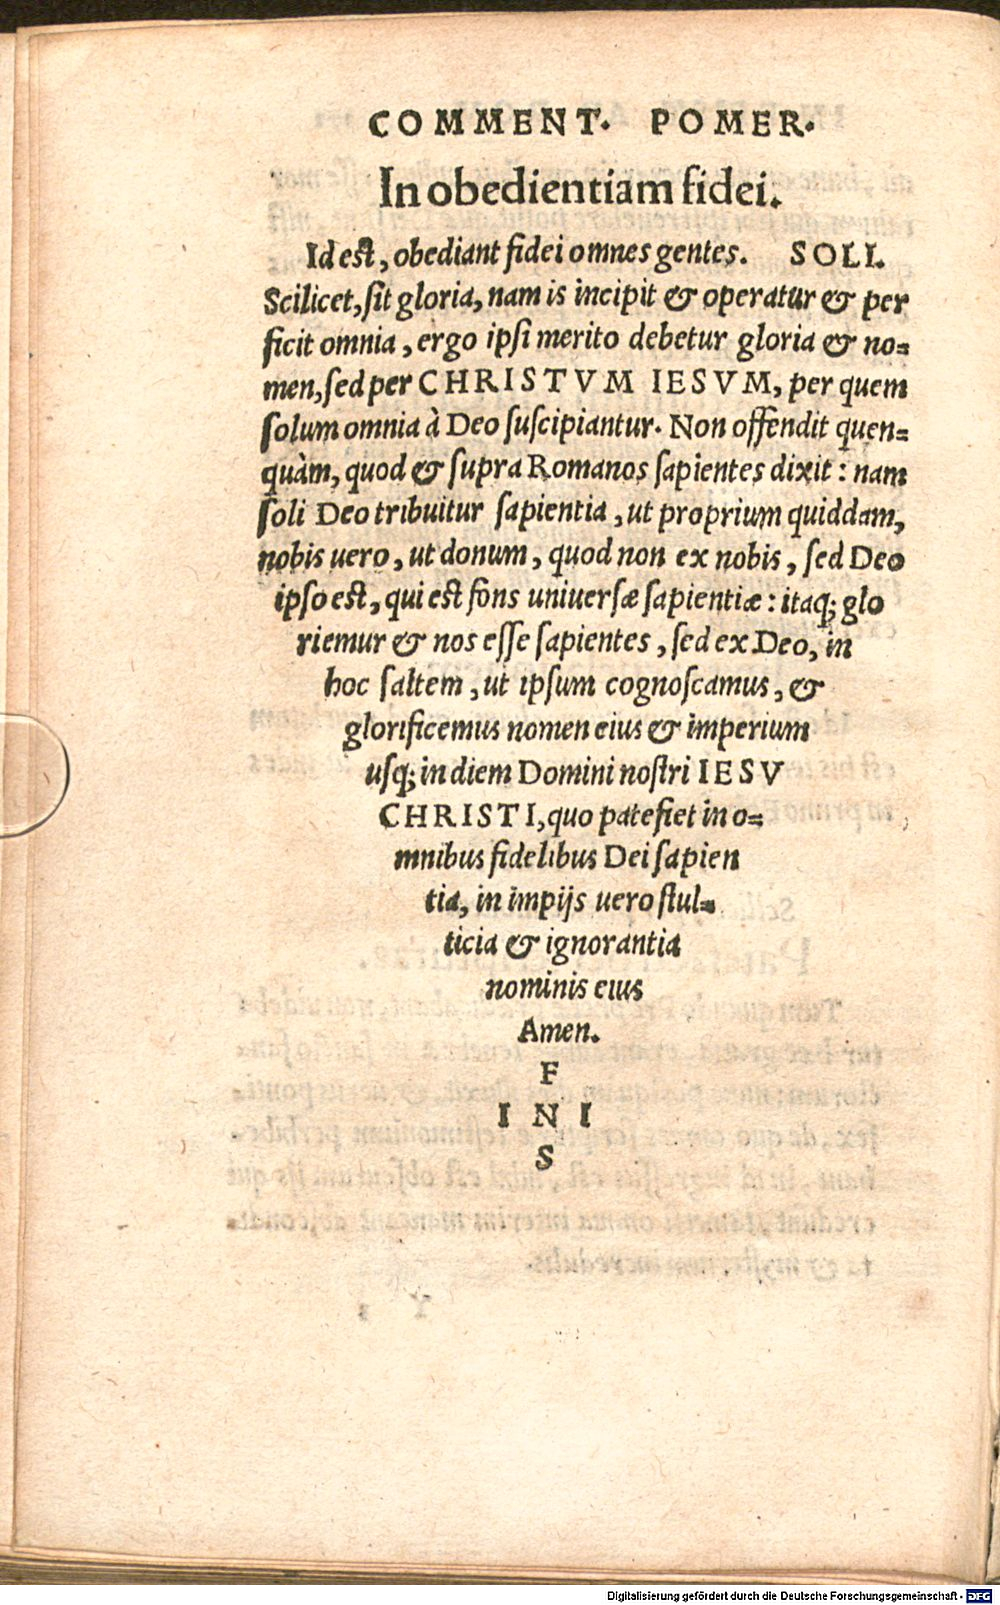 COMMENT. POMER.
In obedientiam fidei.
Id est, obediant fidei omnes gentes. SOLI.
Scilicet, sit gloria, nam is incipit & operatur & per
ficit omnia, ergo ipsi merito debetur gloria & no=
men, sed per CHRISTVM IESVM, per quem
solum omnia à Deo suscipiantur. Non offendit quen=
quàm, quod & supra Romanos sapientes dixit: nam
soli Deo tribuitur sapientia, ut proprium quiddam,
nobis uero, ut donum, quod non ex nobis, sed Deo
ipso est, qui est fons uniuersæ sapientiæ: itaq; glo
riemur & nos esse sapientes, sed ex Deo, in
hoc saltem, ut ipsum cognoscamus, &
glorificemus nomen eius & imperium
usq; in diem Domini nostri IESV
CHRISTI, quo patefiet in o=
mnibus fidelibus Dei sapien
tia, in impijs uero stul=
ticia & ignorantia
nominis eius
Amen.
F
I N I
S
Digitalisierung gefördert durch die Deutsche Forschungsgemeinschaft - DFG